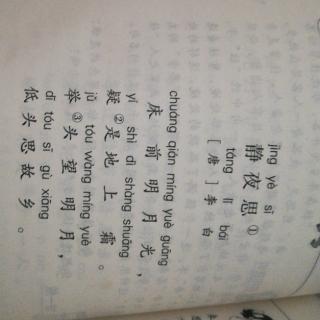 jìng yè sī
静夜思①
táng lǐ bái
［唐］李白
chuáng qián míng yuè guāng
床前明月光，
yí shì dì shàng shuāng
疑②是地上霜。
jǔ tóu wàng míng yuè
举③头望明月，
dī tóu sī gù xiāng
低头思故乡。